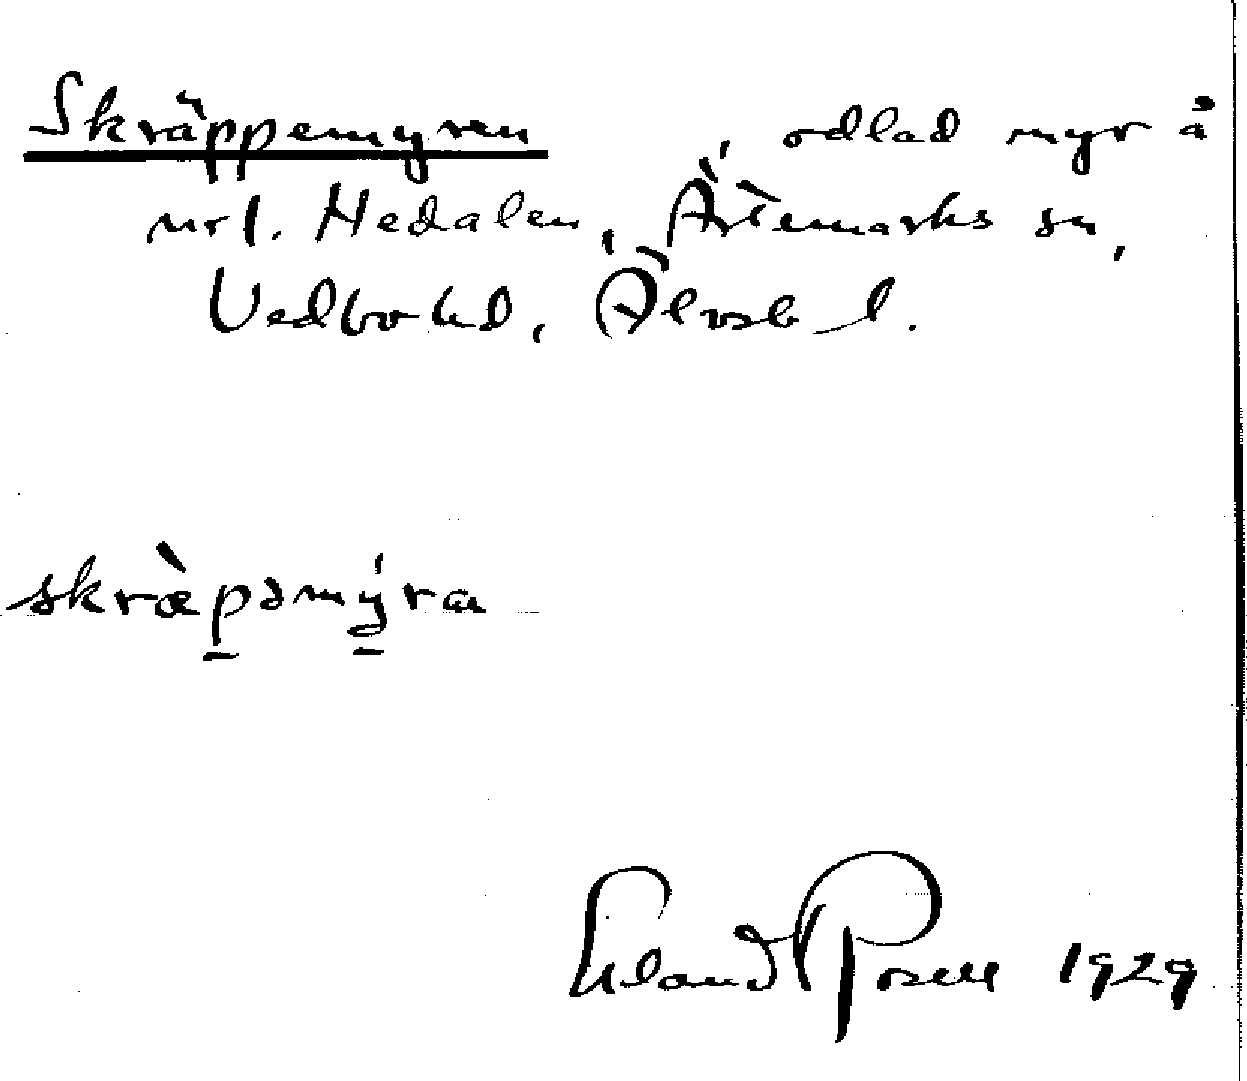 Skräppemyren, odlad myr å
nrl. Hedalen, Ärtemarks sn,
Vedbo hd, Älvsb l.
skræ̀pəmýra
Erland Rosell 1929